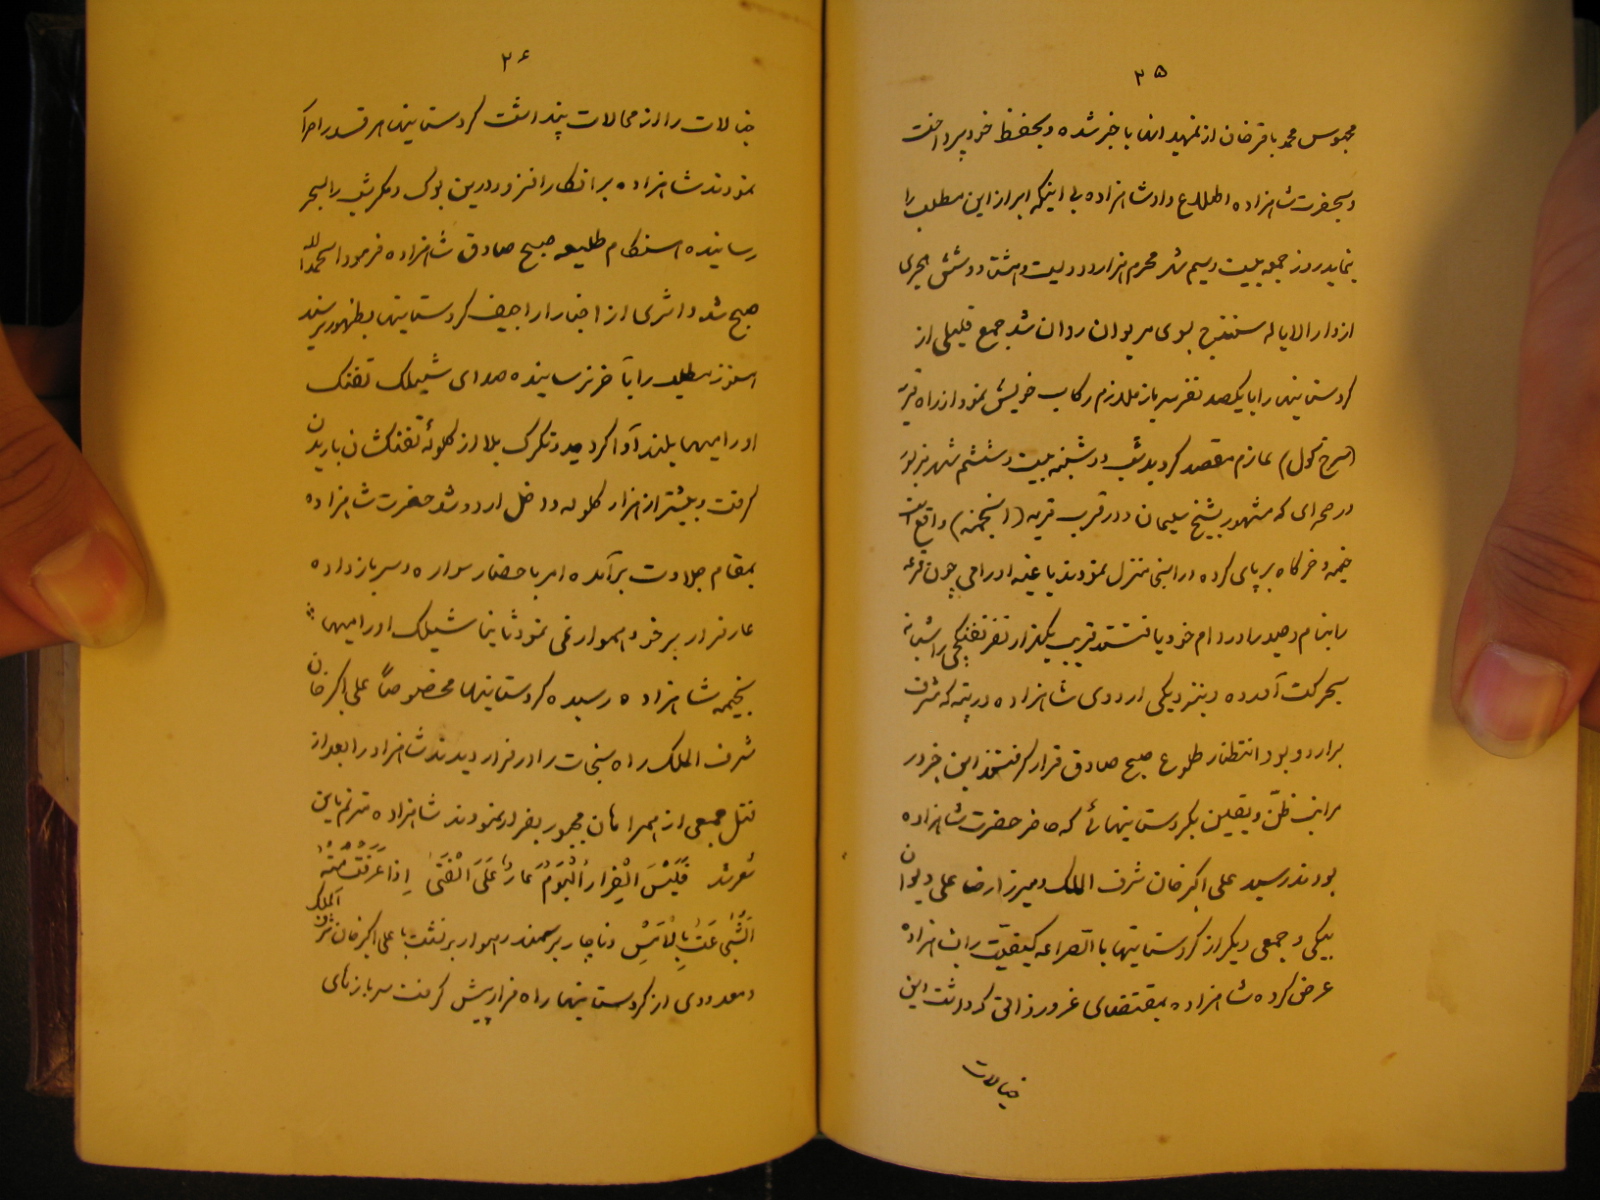 ۲۵
محبوس محمد باقرخان از تمهید آنها با خبر شده و بحفظ خود پرداخت
و بحضرت شاهزاده اطلاع داد شاهزاده بی اینکه ابراز این مطلب را
نماید روز جمعه بیست و سیم شهر محرم هزار و دویست و هشتاد و شش هجری
از دار الایاله سنندج بسوی مریوان روان شد جمع قلیلی از
کردستانیها را با یکصد نفر سرباز ملازم رکاب خویش نمود از راه قریه
عازم مقصد گردید شب دوشنبه بیست و ششم شهر مزبور
در صحرای که مشهور بشیخ سلیمان و در قرب قریه واقع است
خیمه و خرگاه بر پای کرده در اینجا منزل نمودند یاغیه اورامی چون قرعه
را بنام و صید را در دام خود یافتند قریب یکهزار نفر تفنگچی را شبانه
بحرکت آمده و بنزدیکی اردوی شاهزاده در پته که مشرف
بر اردو بود انتظار طلوع صبح صادق قرار گرفتند این خبر در
مراتب ظن و یقین بکردستانیهائی که حاضر حضرت شاهزاده
بودند رسید علی اکبرخان شرف الملک و میرزا رضا علی دیوان
بیگی و جمعی دیگر از کردستانیها با الصراعه کیفیت را بشاهزاده
عرض کرده شاهزاده بمقتضای غرور ذاتی که داشت این
خیالات
۲۶
خیالات را از محالات پنداشت کردستانیها هر قدر اصرار
نمودند شاهزاده بر انکار افزود در این بوک و مگر شب را بسحر
رسانیده هنگام طلیعه صبح صادق شاهزاده فرمود الحمدلله
صبح شد و اثری از اخبار اراجیف کردستانیها بظهور نرسید
هنوز مطلب را بآخر نرسانیده صدای شیلیک تفنگ
اورامیها بلند آوا گردید و تگرگ بلا از گلوله تفنگشان باریدن
گرفت و بیشتر از هزار گلوله داخل اردو شد حضرت شاهزاده
بمقام جلادت برآمده امر باحضار سواره و سرباز داده
عار فرار بر خود هموار نمی نمود ثانیا شیلیک اورامیها
بخیمه شاهزاده رسیده کردستانیها مخصوصاً علی اکبر خان
شرف الملک راه نجات را در فرار دیدند شاهزاده را بعد از
قتل جمعی از همراهان مجبور بفرار نمودند شاهزاده مترنم باین
شعر شد فَلَیْسَ الْفِرارُ الْیَوْمَ عاراً عَلَی الْفَتیٰ اِذا عَرَفَتْ مِنْهُ
الشَّجاعَتُ بِالْاَمْسِ و ناچار بر سمند رهوار بر نشست با علی اکبر خان شرف الملک
و معدودی از کردستانیها راه فرار پیش گرفت سربازهای